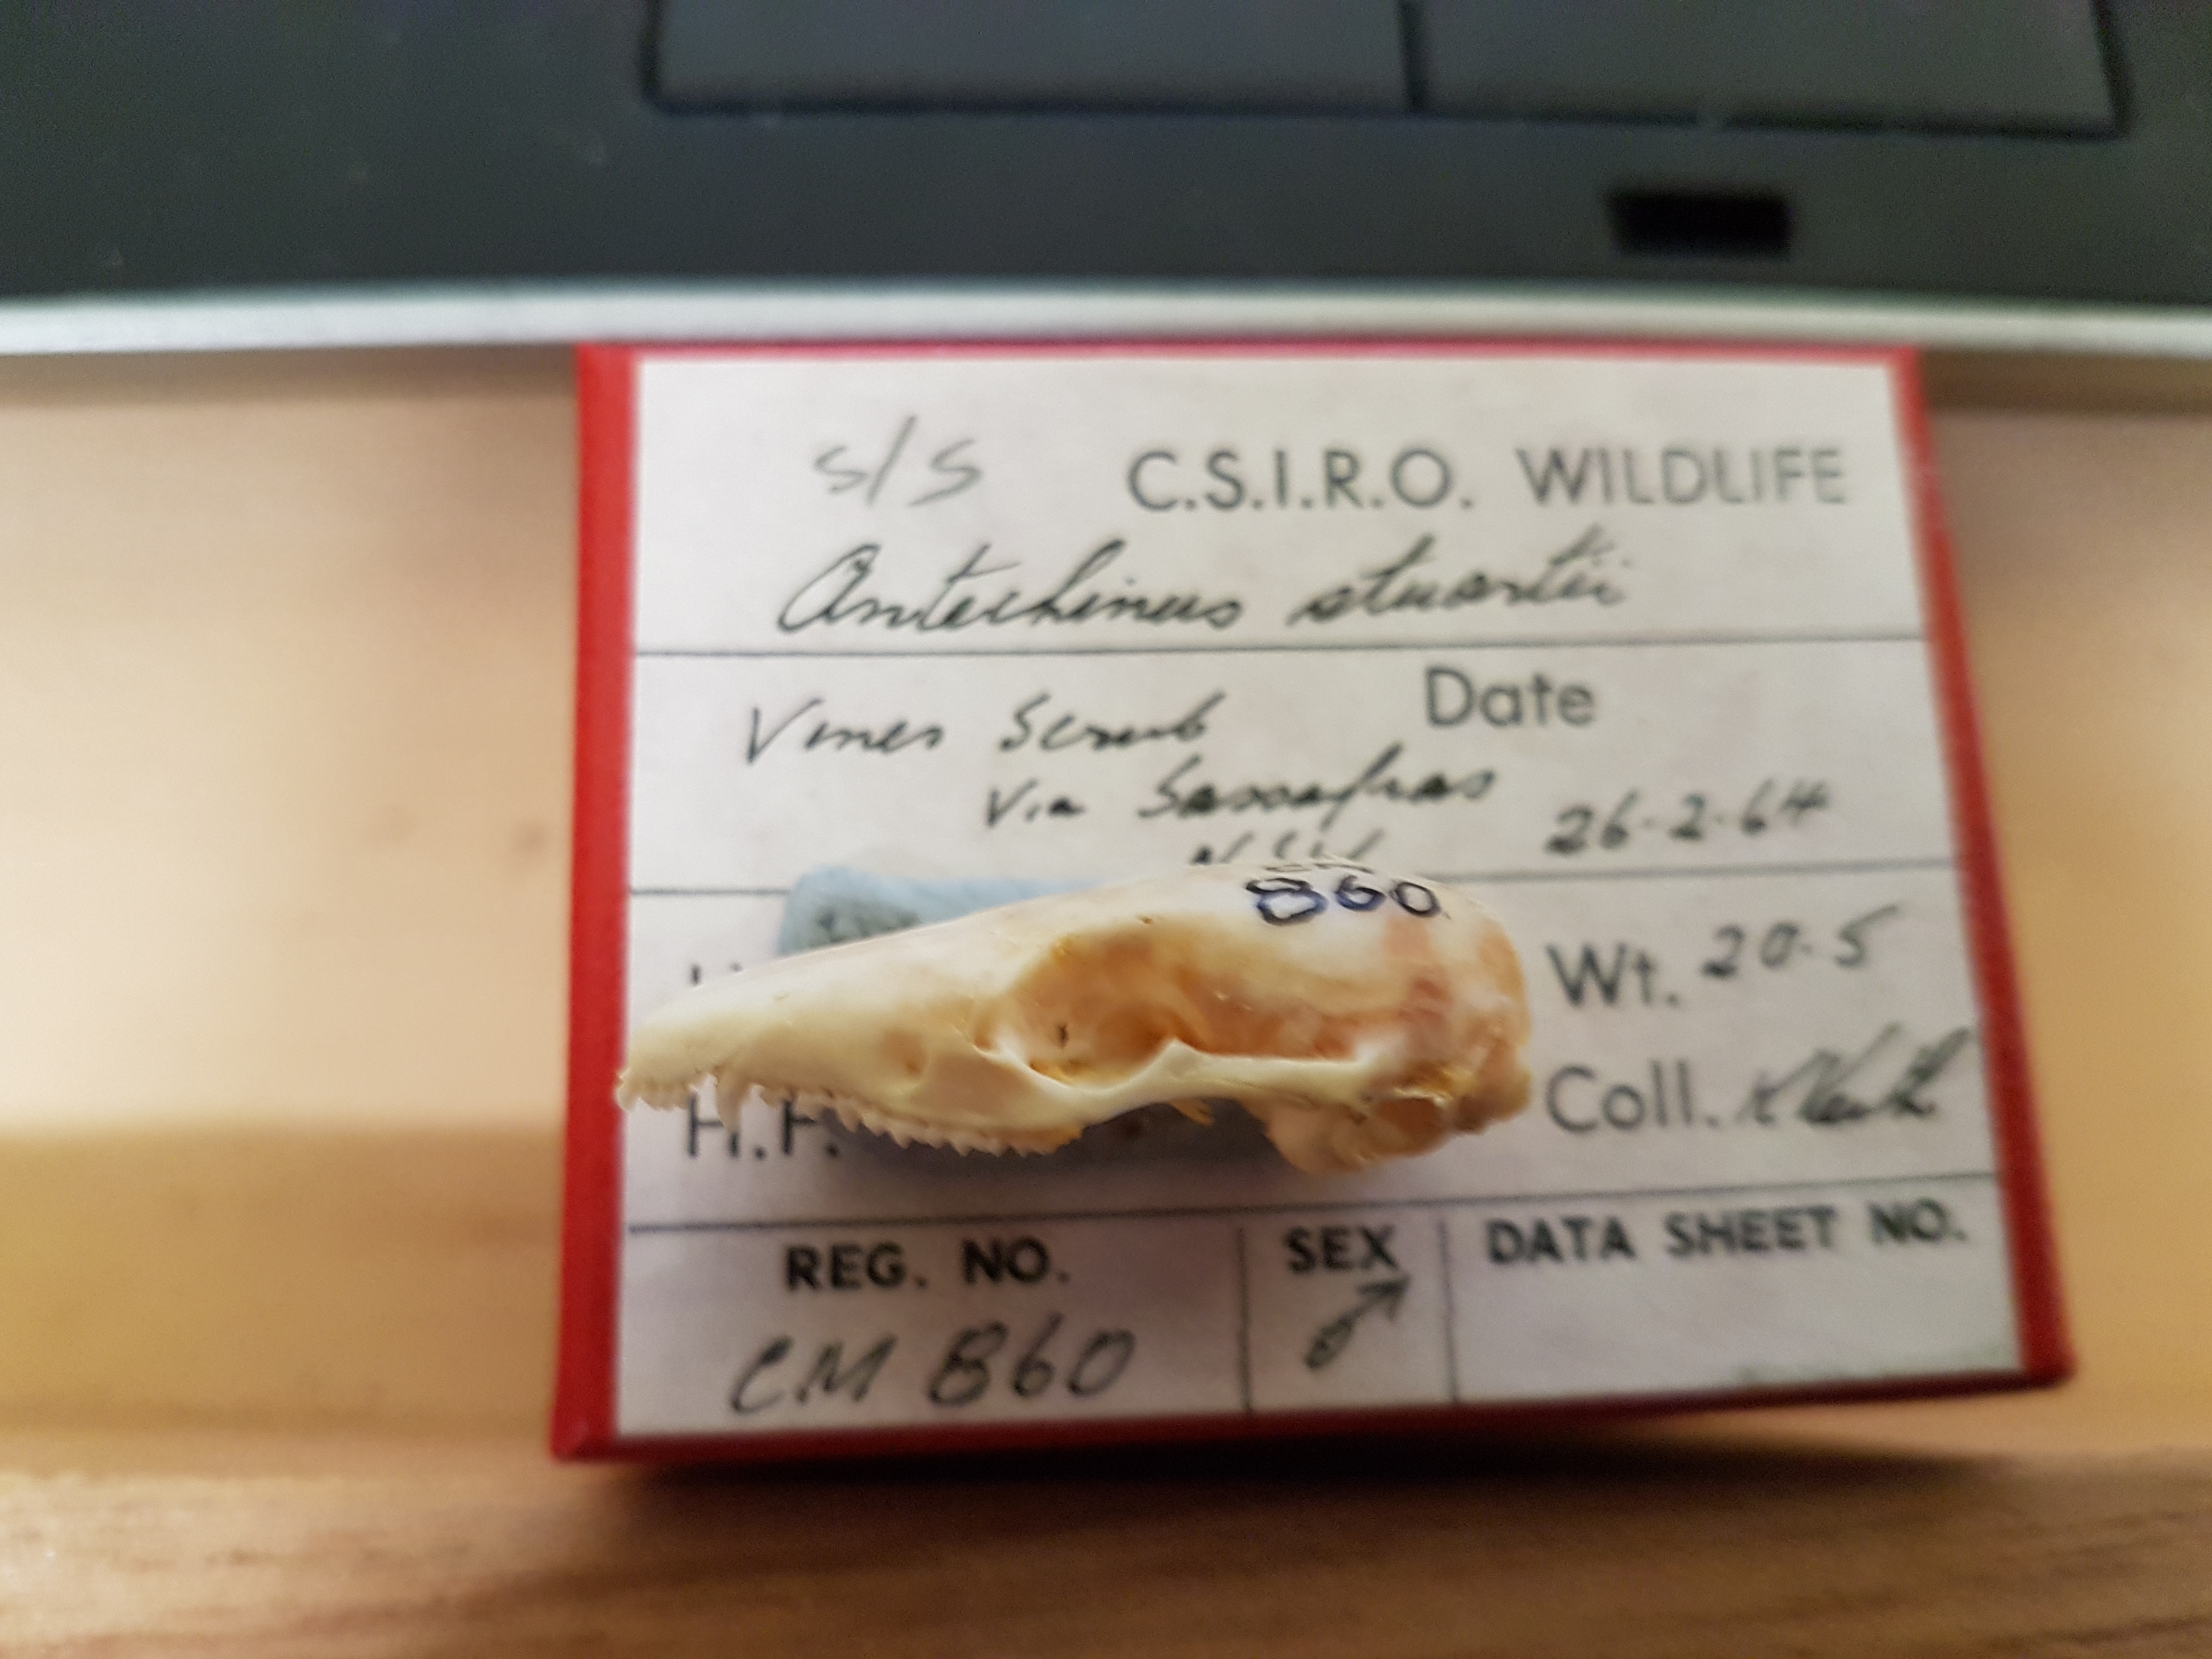 S/S C.S.I.R.O. WILDLIFE
Antechinus stuartii
Vines Scrub Date
Via 26-2-64
Wt. 20.5
H.F. Coll.
REG. NO. SEX DATA SHEET NO.
CM 860 ♂
860